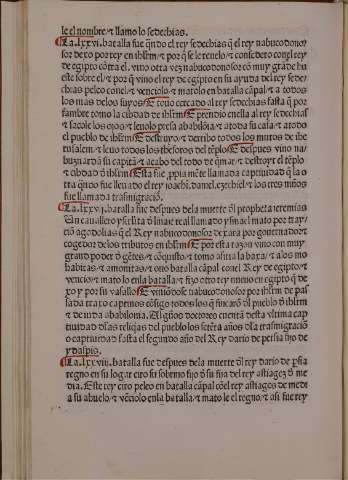 le el nombre ⁊ llamo lo sedechias.
La.lxxvi. batalla fue q̃ndo el rey sedechias q̃ el rey nabucodono
sor dexo por rey en ihrlm̃ ⁊ por q̃ se le reuelo ⁊ confedero conel rey
de egipto cõtra el. vino otra vez nabucodonosor cõ muy grãde hu
este sobre el ⁊ por q̃ vino el rey de egipto en su ayuda del rey sede
chias peleo conel ⁊ venciolo ⁊ matolo en batalla cãpal ⁊ a todos
los mas delos suyos E touo cercado al rey sedechias fasta q̃ por
fambre tomo la cibdad de ihrlm̃ E prendio enella al rey sedechias
⁊ sacole los ojos ⁊ leuolo preso a babilõia ⁊ a toda su casa ⁊ a todo
el pueblo de ihrlm̃ E destruyo ⁊ derribo todos los muros de ihe
rusalem ⁊ leuo todos los thesoros del tẽplo E despues vino na
buzardã su capitã ⁊ acabo del todo de q̃mar ⁊ destroyr el tẽplo
⁊ cibdad d̃ ihrlm̃ Esta fue ppia mẽte llamada captiuidad q̃ la o
tra q̃ndo fue lleuado el rey joachĩ. daniel. ezechiel ⁊ los tres niños
fue llamada trasmigraciõ.
La.lxxvij. batalla fue despues dela muerte d̃l propheta jeremias
Un cauallero ysrlita d̃ linaje real llamado ysmael mato por tray/
ciõ a godolias q̃ el Rey nabucodonosor dexara por gouernador ⁊
cogedor delos tributos en ihrlm̃ E por esta razon vino con muy
grand poder d̃ gẽtes ⁊ cõquisto ⁊ tomo a siria la baxa ⁊ alos mo
habitas ⁊ amonitas ⁊ ouo batalla cãpal conel Rey de egipto ⁊
vencio ⁊ mato lo enla batalla ⁊ fizo otro rey nueuo en egipto q̃ de
xo y por su vasallo E viniẽdose nabucodonosor por ihrlm̃ de pas
lada traxo captiuos cõsigo todos los q̃ fincarõ d̃l pueblo d̃ ihrlm̃
⁊ de iuda a babilonia. Algũos doctores cuentã desta vltima cap
tiuidad d̃las reliq̃as del pueblo los setẽta años dla trasmigraciõ
o captiuidad fasta el segundo año del Rey dario de persia fijo de
ydaspio.
La.lxxviii. batalla fue despues dela muerte d̃l rey dario de psia
regno en su logar ciro su sobrino fijo d̃ su fija del rey astiages d̃ me
dia. Este rey ciro peleo en batalla cãpal cõel rey astiages de medi
a su abuelo ⁊ vẽciolo enla batalla ⁊ mato le el regno ⁊ asi fue rey